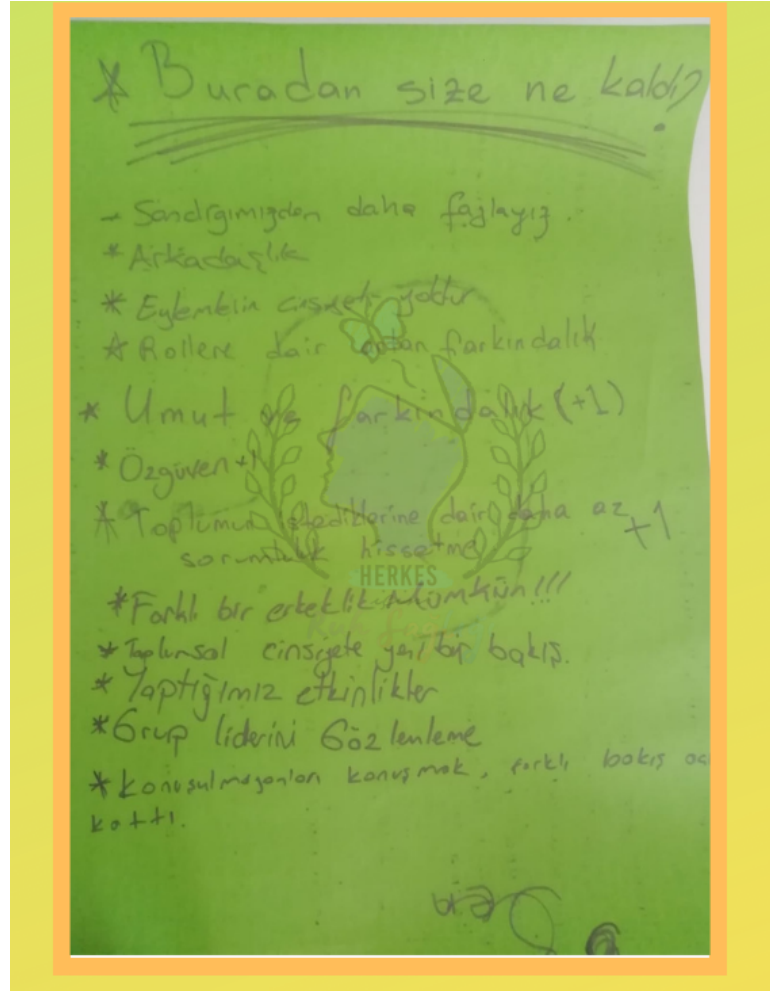 * Buradan size ne kaldı?
- Sandığımızdan daha fazlayız.
* Arkadaşlık
* Eylemlerin cinsiyeti yoktur
* Rollere dair artan farkındalık
* Umut ve farkındalık (+1)
* Özgüven +1
* Toplumun istediklerine dair daha az +1
sorumluluk hissetme
HERKES
* Farklı bir erkeklik Mümkün!!!
* Toplumsal cinsiyete yeni bir bakış.
* Yaptığımız etkinlikler
* Grup liderini Gözlemleme
* Konuşulmayanları konuşmak, farklı bakış
kattı.